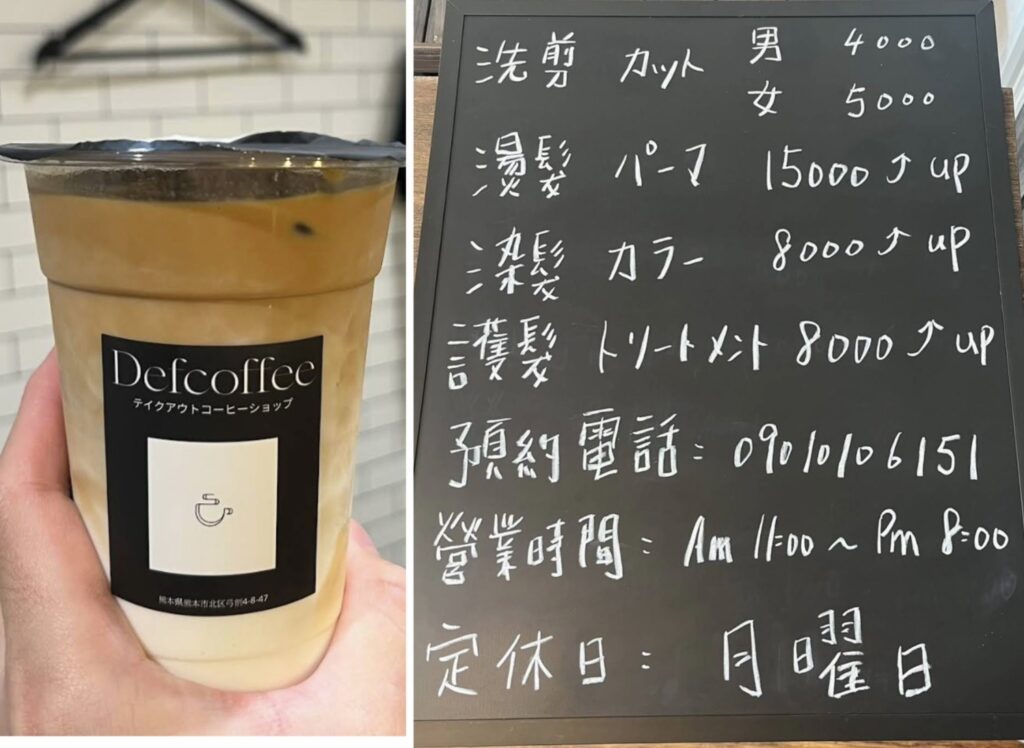 Defcoffee
テイクアウトコーヒーショップ
熊本県熊本市北区弓削4-8-47
洗剪 カット 男 4000
女 5000
燙髮 パーマ 15000↑up
染髮 カラー 8000↑up
護髮 トリートメント 8000↑up
預約電話:09010106151
營業時間:Am 11:00~Pm 8:00
定休日:月曜日